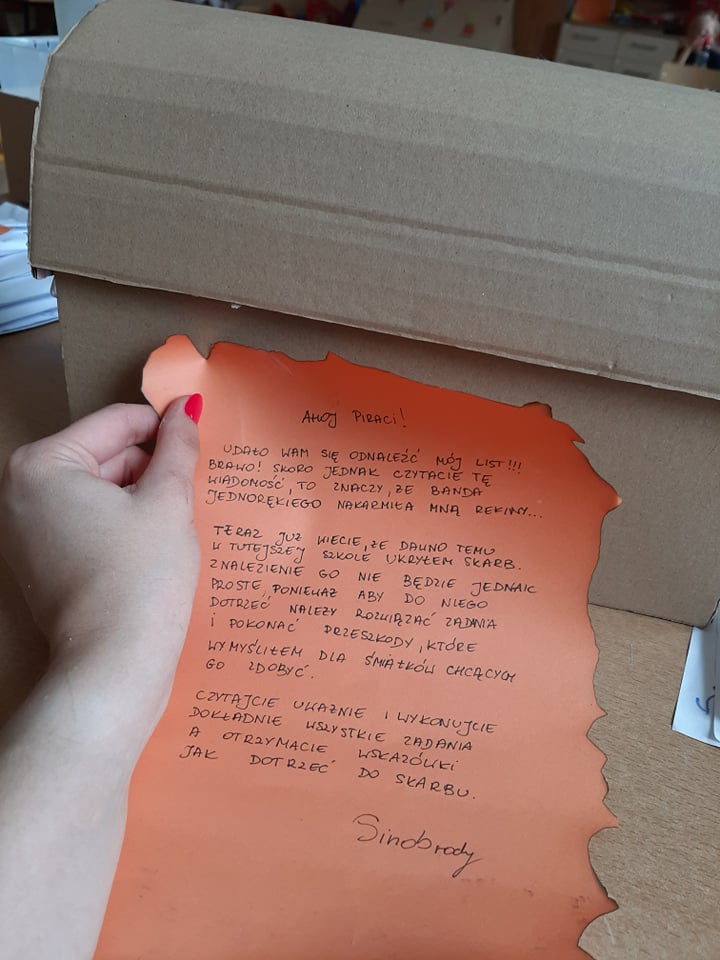 AHOJ PIRACI!
UDAŁO WAM SIĘ ODNALEŹĆ MÓJ LIST!!!
BRAWO! SKORO JEDNAK CZYTACIE TĘ
WIADOMOŚĆ, TO ZNACZY, ŻE BANDA
JEDNORĘKIEGO NAKARMIŁA MNĄ REKINY...
TERAZ JUŻ WIECIE, ŻE DAWNO TEMU
W TUTEJSZEJ SZKOLE UKRYŁEM SKARB.
ZNALEZIENIE GO NIE BĘDZIE JEDNAK
PROSTE, PONIEWAŻ ABY DO NIEGO
DOTRZEĆ NALEŻY ROZWIĄZAĆ ZADANIA
I POKONAĆ PRZESZKODY, KTÓRE
WYMYŚLIŁEM DLA ŚMIAŁKÓW CHCĄCYCH
GO ZDOBYĆ.
CZYTAJCIE UWAŻNIE I WYKONUJCIE
DOKŁADNIE WSZYSTKIE ZADANIA
A OTRZYMACIE WSKAZÓWKI
JAK DOTRZEĆ DO SKARBU.
Sinobrody